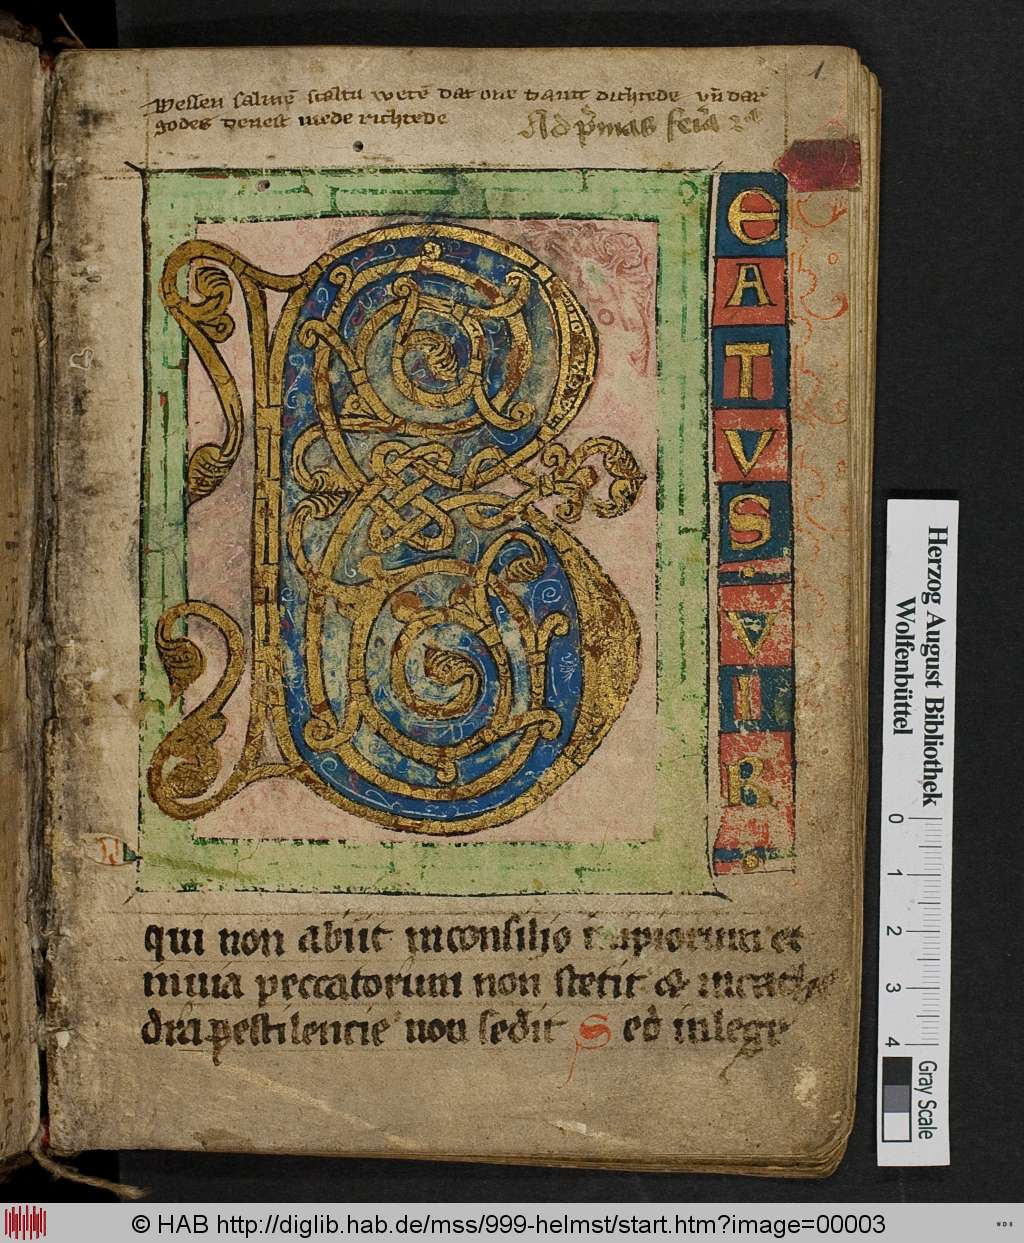 1
dessen salmē scaltu wetē dat one dauit dichtede vn̄ dar
godes denest mede richtede
Ad p̄mas fer̄a 2ᵃ
B
EATVS·VIR·
qui non abiit in consilio impiorum et
in uia peccatorum non stetit & in cathe
dra pestilencie non sedit Seð in lege
Herzog August Bibliothek
Wolfenbüttel
0 1 2 3 4
Gray Scale
© HAB http://diglib.hab.de/mss/999-helmst/start.htm?image=00003